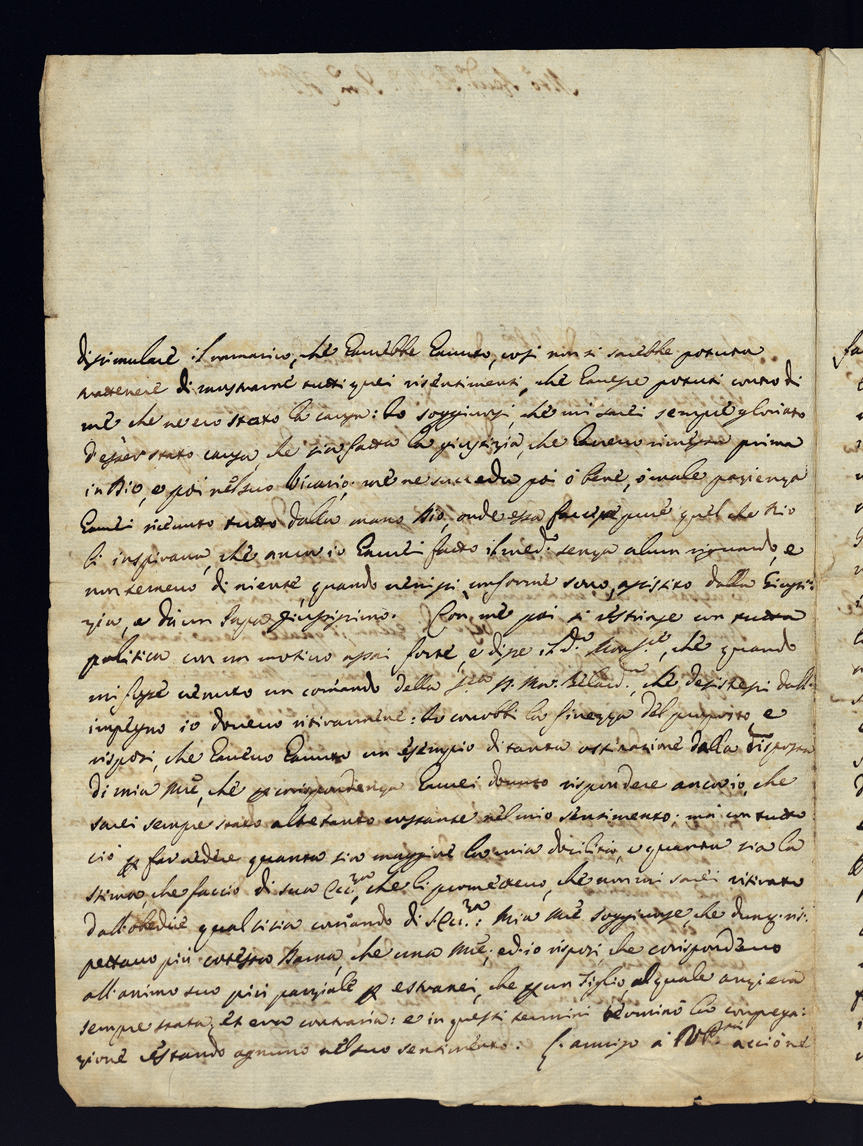 dissimulare il ramarico, che haverebbe havuto, così non si sarebbe potuta
trattenere di mostrarmi tutti quei risentimenti, che havesse potuti contro di
me che ne ero stato la causa: Io soggionsi, che mi sarei sempre gloriato
d'esser stato causa, che sia fatta la giustizia, che havevo rimessa prima
in Dio, e poi nel suo Vicario, me ne succeda poi ò bene, ò male pazienza
havrei ricevuto tutto dalla mano Dio, onde essa facesse pure quel che Dio
li inspirava, che ancor io havrei fatto il med.º senza alcun riguardo, e
non temevo di niente, quando venissi, conforme sono, assistito dalla Giusti:
zia, e da un Papa giustissimo. Con me poi si ristrinse con tutta
politica con un motivo assai forte, e disse il d.º Mons.re, che quando
mi fosse venuto un comando della che desistessi dall'
impegno io dovevo ritirarmene: Io conobbi la finezza del proposito e
risposi, che havevo havuto un esempio di tanta ostinazione dalla risposta
di mia Mre, che p corrispondenza havrei dovuto rispondere ancor io, che
sarei sempre stato altretanto costante nel mio sentimento; mà con tutto
ciò p far vedere quanto sia maggiore la mia docilità, e quanta sia la
stima, che faccio di sua Ecc.za, che li promettevo, che non mi sarei ritirato
dall'obedire qualsisia comando di S. Ecc.za: Mia Mre soggionse che dunq. ris:
pettavo più cotesta Dama, che una Mre; ed io risposi che corrispondevo
all'animo suo più parziale p estranei, che p un figlio, al quale anzi era
sempre stata, et era contraria: e in questi termini terminò la congrega:
zione restando ognuno nel suo sentimento. accióne